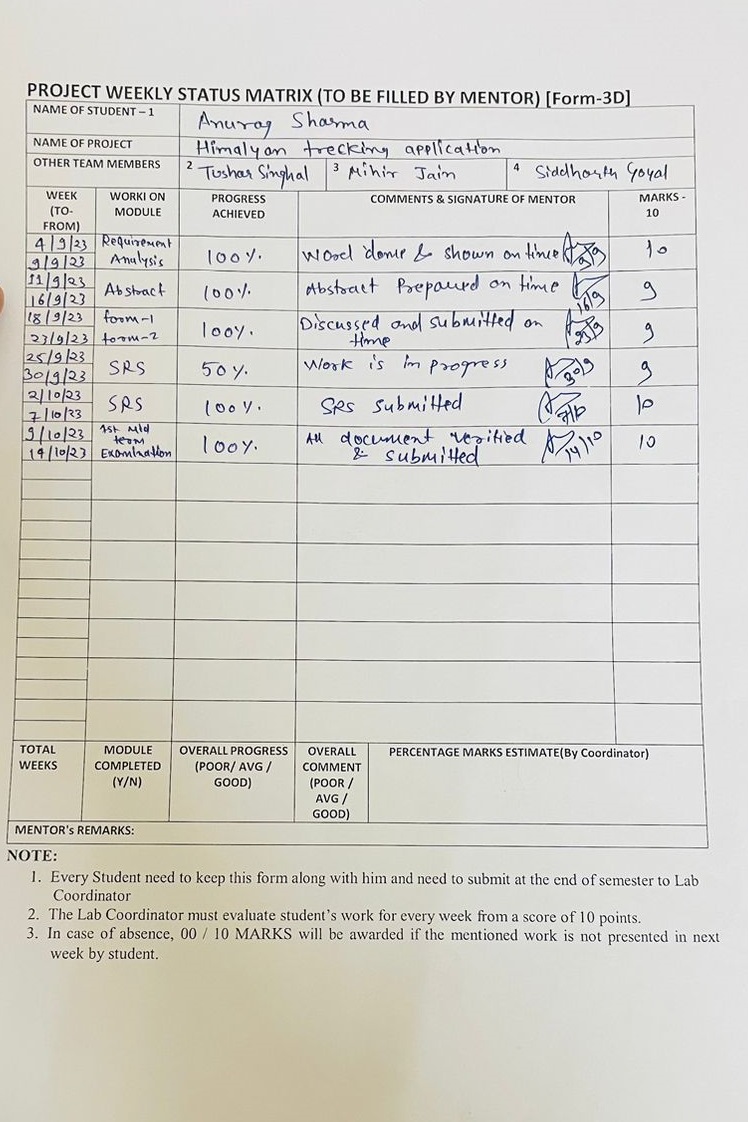 PROJECT WEEKLY STATUS MATRIX (TO BE FILLED BY MENTOR) [Form-3D]
NAME OF STUDENT – 1 Anurag Sharma
NAME OF PROJECT Himalyan trecking application
OTHER TEAM MEMBERS 2 Tushar Singhal 3 Mihir Jain 4 Siddharth Goyal
WEEK (TO- FROM) WORKI ON MODULE PROGRESS ACHIEVED COMMENTS & SIGNATURE OF MENTOR MARKS - 10
4/9/23 Requirement
9/9/23 Analysis 100%. Word done & shown on time 10
11/9/23
16/9/23 Abstract 100%. Abstract Prepared on time 16/9 9
18/9/23 form-1 Discussed and submitted on
23/9/23 form-2 100%. time 9
25/9/23
30/9/23 SRS 50%. Work is in progress 30/9 9
2/10/23
7/10/23 SRS 100%. SRS submitted 7/10 10
9/10/23 1st Mid term All document verified
14/10/23 Examination 100%. & submitted 14/10 10
TOTAL WEEKS MODULE COMPLETED (Y/N) OVERALL PROGRESS (POOR/ AVG / GOOD) OVERALL COMMENT (POOR / AVG / GOOD) PERCENTAGE MARKS ESTIMATE(By Coordinator)
MENTOR's REMARKS:
NOTE:
1. Every Student need to keep this form along with him and need to submit at the end of semester to Lab
Coordinator
2. The Lab Coordinator must evaluate student's work for every week from a score of 10 points.
3. In case of absence, 00 / 10 MARKS will be awarded if the mentioned work is not presented in next
week by student.